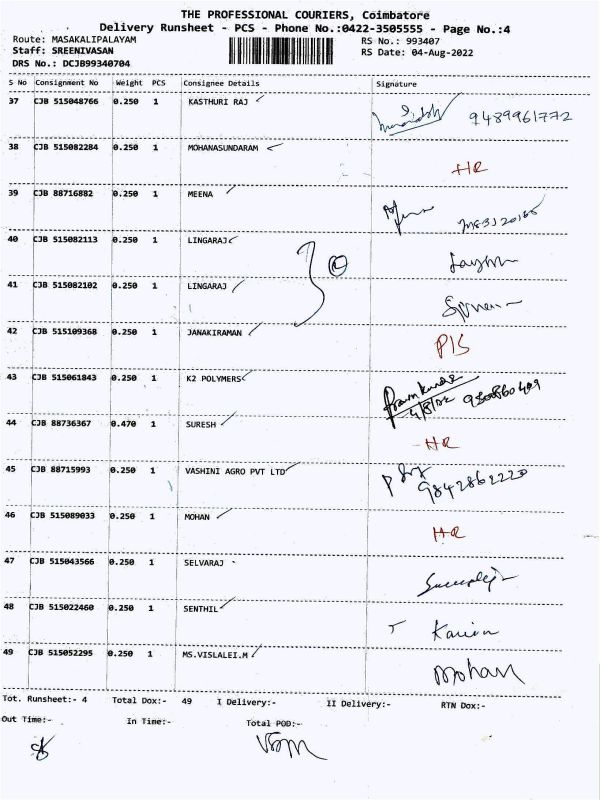 THE PROFESSIONAL COURIERS, Coimbatore
Delivery Runsheet - PCS - Phone No.:0422-3505555 - Page No.:4
Route: MASAKALIPALAYAM RS No.: 993407
Staff: SREENIVASAN RS Date: 04-Aug-2022
DRS No.: DCJB99340704
S No Consignment No Weight PCS Consignee Details Signature
37 CJB 515048766 0.250 1 KASTHURI RAJ 9489961772
38 CJB 515082284 0.250 1 MOHANASUNDARAM HR
39 CJB 88716882 0.250 1 MEENA
40 CJB 515082113 0.250 1 LINGARAJ
41 CJB 515082102 0.250 1 LINGARAJ
42 CJB 515109368 0.250 1 JANAKIRAMAN P15
43 CJB 515061843 0.250 1 K2 POLYMERS
4/8/22
44 CJB 88736367 0.470 1 SURESH HR
45 CJB 88715993 0.250 1 VASHINI AGRO PVT LTD
9842862220
46 CJB 515089033 0.250 1 MOHAN HR
47 CJB 515043566 0.250 1 SELVARAJ
48 CJB 515022460 0.250 1 SENTHIL
49 CJB 515052295 0.250 1 MS.VISLALEI.M Mohan
Tot. Runsheet:- 4 Total Dox:- 49 I Delivery:- II Delivery:- RTN Dox:-
Out Time:- In Time:- Total POD:-